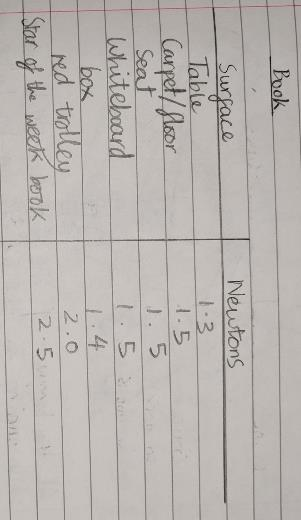 Book
Surface Newtons
Table 1.3
Carpet/floor 1.5
Seat 1.5
Whiteboard 1.5
box 1.4
red trolley 2.0
Star of the week book 2.5